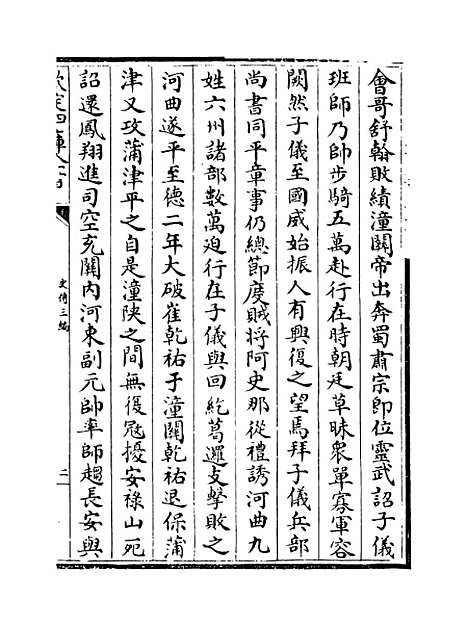 會哥舒翰敗績潼關帝出奔蜀肅宗即位靈武詔子儀
班師乃帥步騎五萬赴行在時朝廷草昧衆單寡軍容
闕然子儀至國威始振人有興復之望焉拜子儀兵部
尚書同平章事仍總節度賊將阿史那從禮誘河曲九
姓六州諸部數萬迫行在子儀與回紇葛邏支擊敗之
河曲遂平至德二年大破崔乾祐于潼關乾祐退保蒲
津又攻蒲津平之自是潼陜之間無復冦擾安祿山死
詔還鳳翔進司空充關内河東副元帥率師趨長安與
欽定四庫全書
史傳三編
二